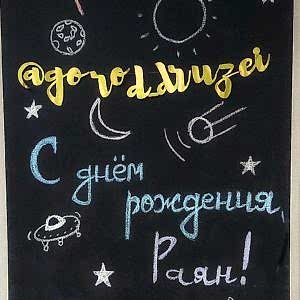 @gorod_druzei
С днём
рождения,
Раян!